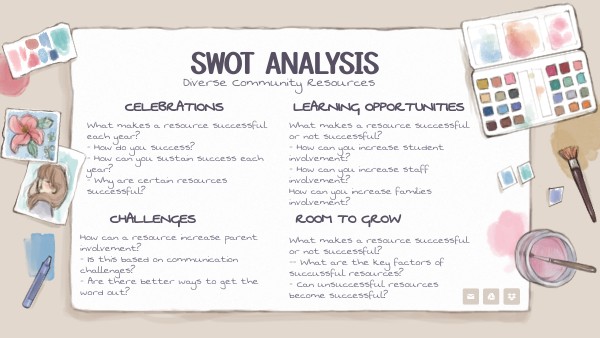 SWOT ANALYSIS
Diverse Community Resources
CELEBRATIONS
What makes a resource successful
each year?
- How do you success?
- How can you sustain success each
year?
- Why are certain resources
successful?
LEARNING OPPORTUNITIES
What makes a resource successful
or not successful?
- How can you increase student
involvement?
- How can you increase staff
involvement?
How can you increase families
involvement?
CHALLENGES
How can a resource increase parent
involvement?
- Is this based on communication
challenges?
- Are there better ways to get the
word out?
ROOM TO GROW
What makes a resource successful
or not successful?
- What are the key factors of
succussful resources?
- Can unsuccessful resources
become successful?